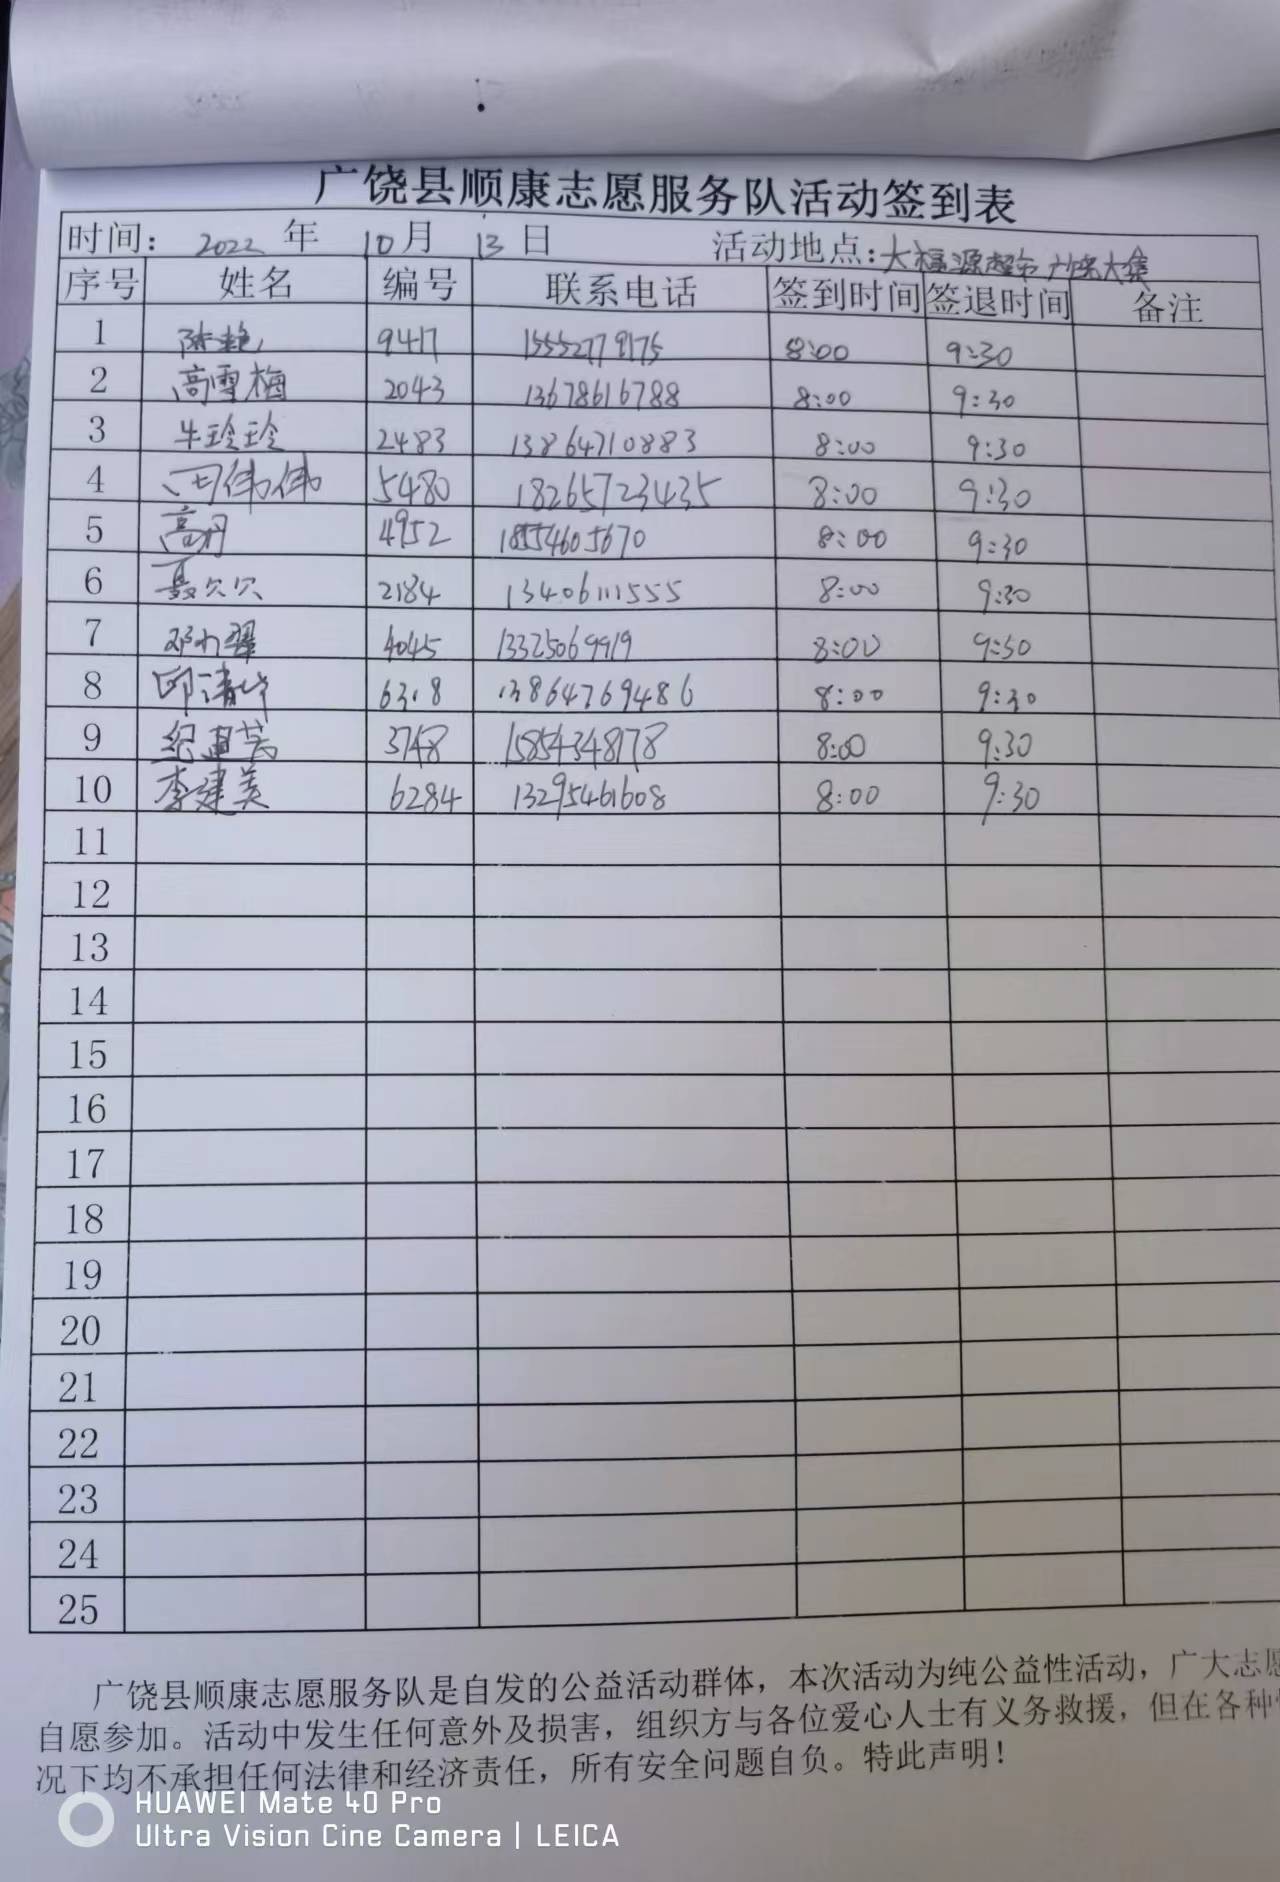 广饶县顺康志愿服务队活动签到表
时间: 2022 年 10 月 13 日 活动地点: 大福源超市 广饶大集
序号 姓名 编号 联系电话 签到时间 签退时间 备注
1 陈艳 9417 15552779175 8:00 9:30
2 高雪梅 2043 13678616788 8:00 9:30
3 牛玲玲 2483 13864710883 8:00 9:30
4 伟伟 5480 18265723435 8:00 9:30
5 高丹 4952 18554605670 8:00 9:30
6 聂 2184 13406111555 8:00 9:30
7 邓 4045 13325069919 8:00 9:30
8 邱清华 6318 13864769486 8:00 9:30
9 纪 3748 15854348178 8:00 9:30
10 李建美 6284 13295461608 8:00 9:30
11
12
13
14
15
16
17
18
19
20
21
22
23
24
25
广饶县顺康志愿服务队是自发的公益活动群体，本次活动为纯公益性活动，广大志愿
自愿参加。活动中发生任何意外及损害，组织方与各位爱心人士有义务救援，但在各种
况下均不承担任何法律和经济责任，所有安全问题自负。特此声明！
HUAWEI Mate 40 Pro
Ultra Vision Cine Camera | LEICA